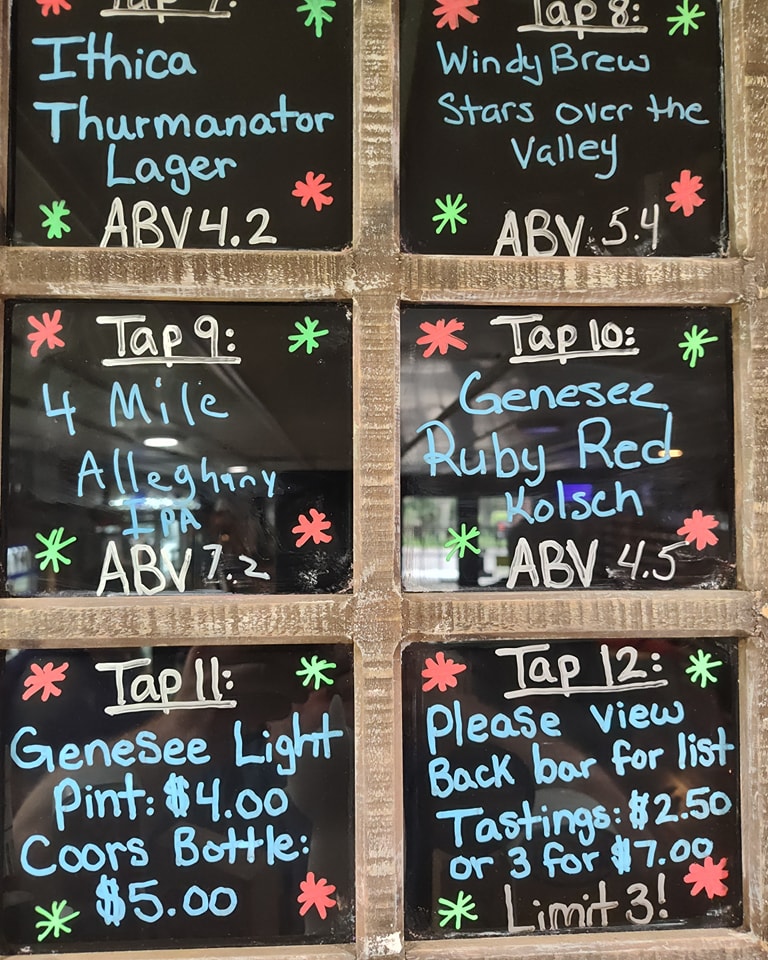 Tap 7:
Ithica
Thurmanator
Lager
ABV 4.2
Tap 8:
Windy Brew
Stars over the
Valley
ABV 5.4
Tap 9:
4 Mile
Alleghany
IPA
ABV 7.2
Tap 10:
Genesee
Ruby Red
Kolsch
ABV 4.5
Tap 11:
Genesee Light
Pint: $4.00
Coors Bottle:
$5.00
Tap 12:
Please view
Back bar for list
Tastings: $2.50
or 3 for $7.00
Limit 3!